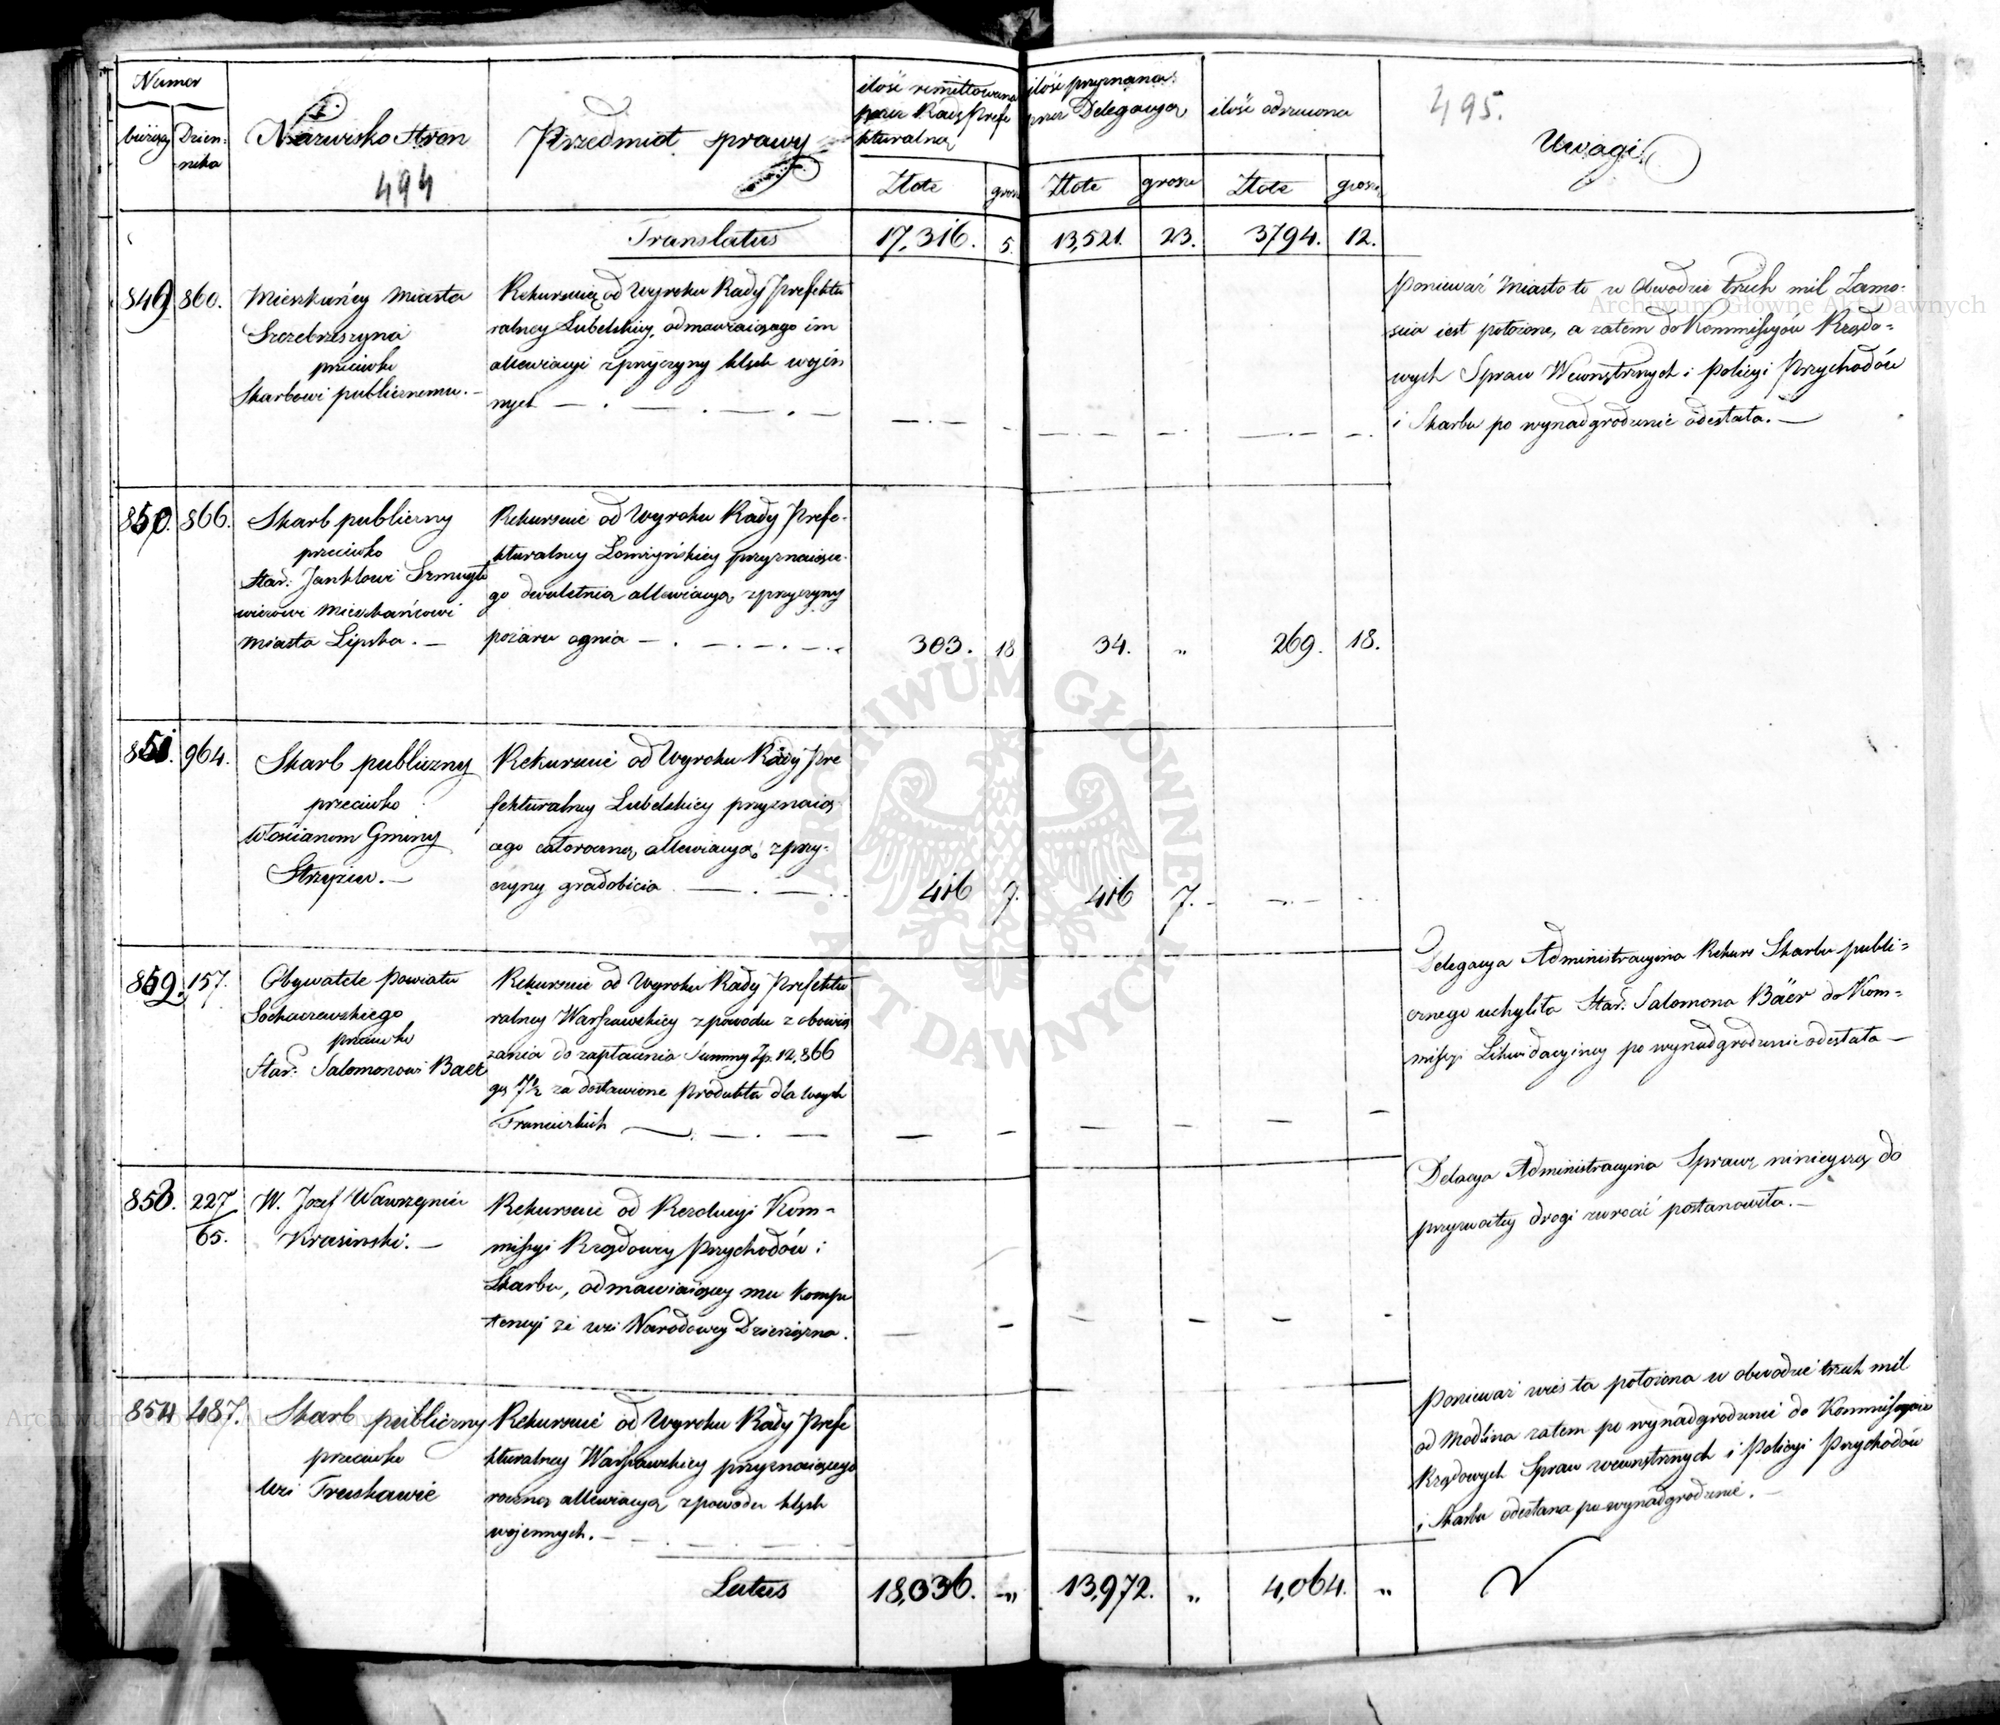 Numer
bieżący
Dzien:
nika
Nazwisko Stron
494
Przedmiot sprawy
ilość remittowana
przez Radę Prefe
kturalną
Złote
grosze
ilość przyznana
przez Delegacyą
Złote
grosze
ilość odrzucona
Złote
grosze
495.
Uwagi
Translatus
17,316. 5. 13,521. 23. 3794. 12.
849 860.
Mieszkańcy Miasta
Szczebrzeszyna
przeciwko
Skarbowi publicznemu. —
Rekursuią od Wyroku Rady Prefektu
ralney Lubelskiey, odmawiaiącego im
allewiacyi z przyczyny klęsk wojen
nych — . — . — . —
Ponieważ Miasto to w Obwodzie trzech mil Zamo-
scia iest położone, a zatem do Kommissyów Rządo=
wych Spraw Wewnętrznych i Policyi Przychodów
i Skarbu po wynadgrodzenie odesłała. —
850. 866.
Skarb publiczny
przeciwko
Star: Janklowi Szmuylo
wiczowi Mieszkańcowi
Miasta Lipska. —
Rekursuie od Wyroku Rady Prefe-
kturalney Łomżyńskiey przyznaiące-
go dwuletnia allewiacyą z przyczyny
pożaru ognia — . — . — . —
303. 18 34. „ 269. 18.
851. 964.
Skarb publiczny
przeciwko
Włościanom Gminy
Strzyżew. —
Rekursuie od Wyroku Rady Pre
fekturalney Lubelskiey przyznaią
cego całoroczną allewiacyą z przy-
czyny gradobicia — . — .
416 7. 416 7. -
852. 157.
Obywatele Powiatu
Sochaczewskiego
przeciwko
Star: Salomonowi Baer
Rekursuie od Wyroku Rady Prefektu
ralney Warszawskiey z powodu zobowią
zania do zapłacenia Summy Zp. 12,866
gr 7½ za dostawione Produkta dla woysk
Francuzkich — . — . —
Delegacya Administracyina Rekurs Skarbu publi=
cznego uchyliła Star: Salomona Bäer do Kom=
missyi Likwidacyiney po wynadgrodzenie odesłała —
853. 227/65.
W. Jozef Wawrzyniec
Krasinski. —
Rekursuie od Rezolucyi Kom-
missyi Rządowey Przychodów i
Skarbu, odmawiaiącey mu kompe
tencyi ze wsi Narodowey Dzierżązna.
Delacya Administracyina Sprawę ninieyszą do
przyzwoitey drogi zwrocić postanowiła. —
854 487.
Skarb publiczny
przeciwko
Wsi Truskawie
Rekursuie od Wyroku Rady Prefe
kturalney Warszawskiey przyznaiącego
roczną allewiacyą z powodu klęsk
wojennych. —
Ponieważ wieś ta położona w obwodzie trzech mil
od Modlina zatem po wynadgrodzenie do Kommissyów
Rządowych Spraw wewnętrznych i Policyi Przychodów
i Skarbu odesłana po wynadgrodzenie. —
Latus
18,036. „ 13,972. „ 4,064. „
Archiwum Główne Akt Dawnych
ARCHIWUM GŁÓWNE AKT DAWNYCH